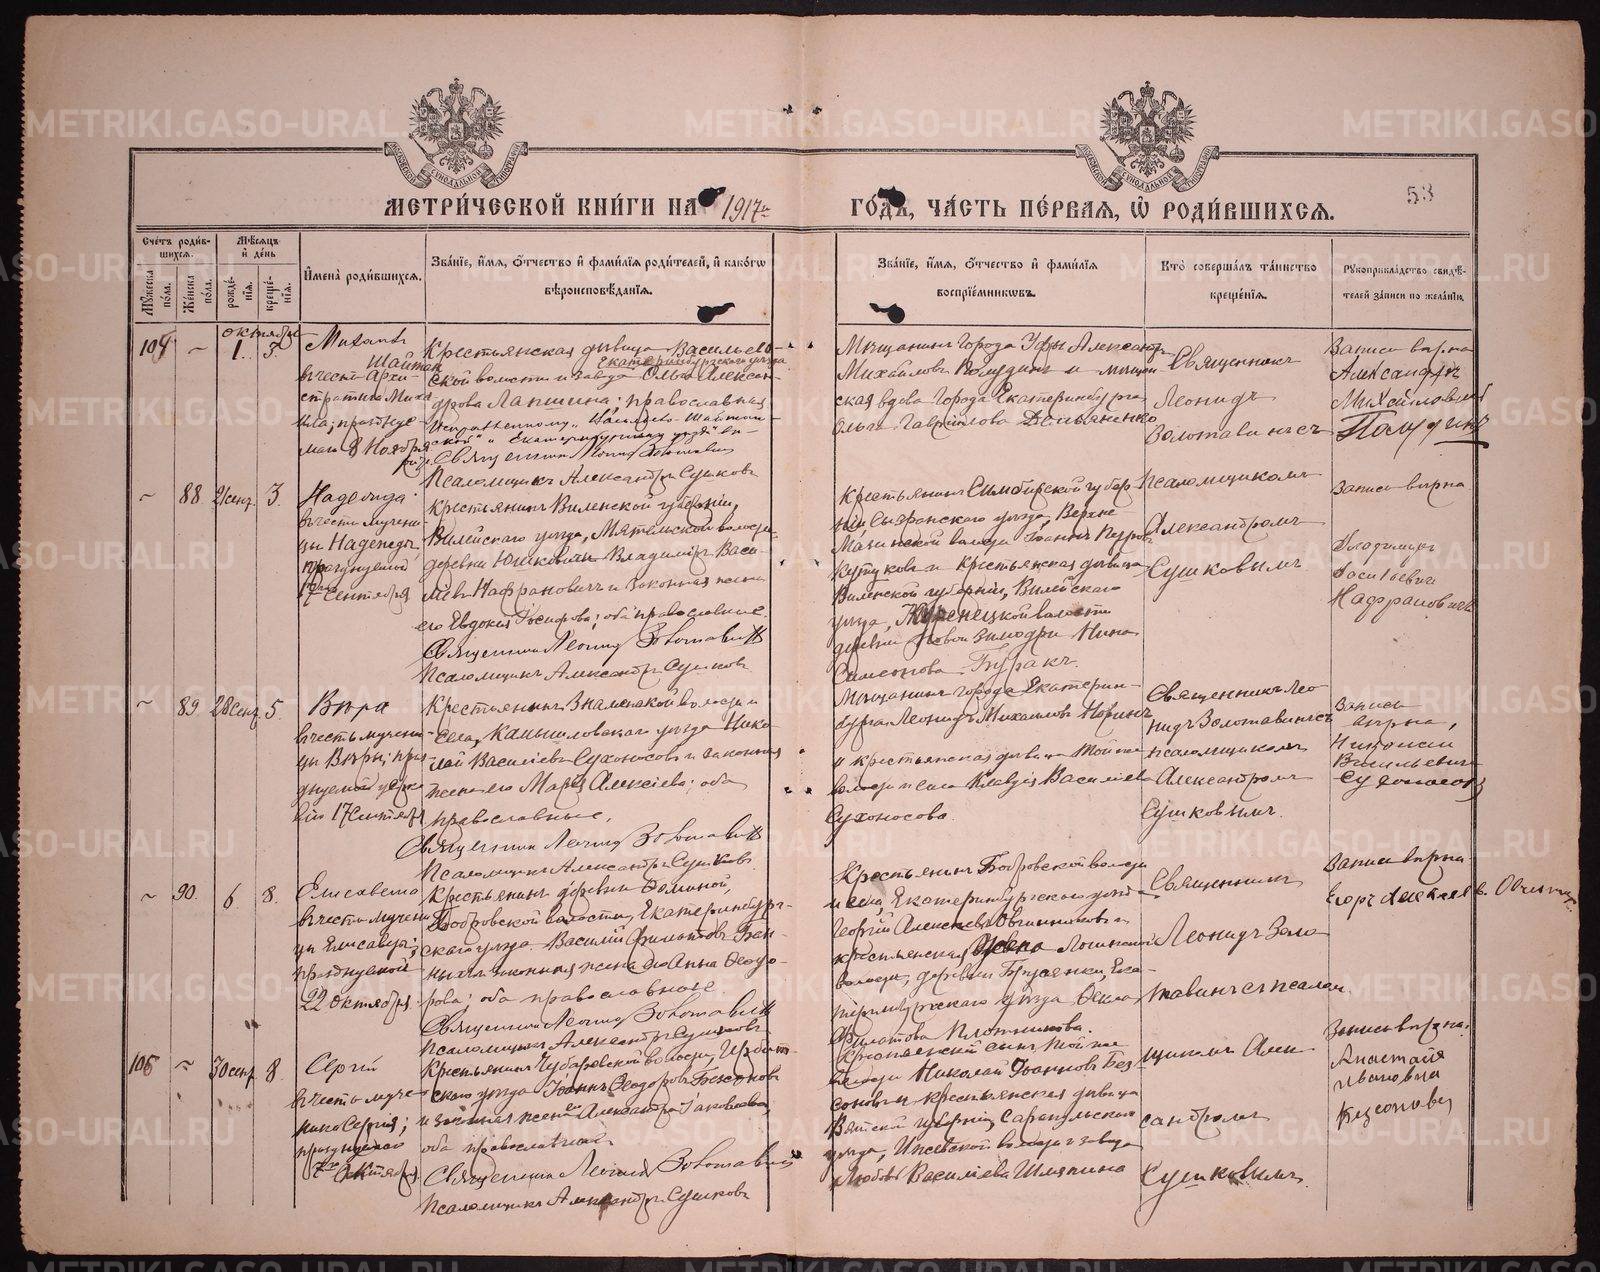 МЕТРИЧЕСКОЙ КНИГИ НА 1917й
ГОДЪ, ЧАСТЬ ПЕРВАЯ, Ѡ РОДИВШИХСЯ.
53
Счетъ родив-
шихся.
Мѣсяцъ
и день
Мужеска
пола.
Женска
пола.
рожде-
нія.
креще-
нія.
Имена родившихся.
Званіе, имя, отчество и фамилія родителей, и какогѡ
вѣроисповѣданія.
Званіе, имя, отчество и фамилія
воспріемниковъ.
Кто совершалъ таинство
крещенія.
Рукоприкладство свидѣ-
телей записи по желанію.
октября
104 1. 5.
Михаилъ
въ честь Архи-
стратига Миха
ила; праздвуе
маго 8 Ноября
Крестьянская дѣвица Васильево-
Шайтан Екатеринбургскаго уѣзда
ской волости и завода Ольга Алексан-
дрова Лапшина; православная
Священникъ Леонидъ Золотавинъ
Псаломщикъ Александръ Сушковъ
Мѣщанинъ города Уфы Александръ
Михайловъ Полудинъ и мѣщан
ская вдова города Екатеринбурга
Ольга Гаврилова Демьяненко
Священникъ
Леонидъ
Золотавинъ съ
Запись вѣрна
Александръ
Михайловъ
88 21 сент. 3
Надежда
въ честь мучени-
цы Надежды
празднуемой
17 Сентября
Крестьянинъ Виленской губерніи,
Вилейскаго уѣзда, Мятельской волости,
деревни Юшковичи Владиміръ Васи-
ліевъ Нафрановичъ и законная жена
его Евдокія Іосифова; оба православные.
Священникъ Леонидъ Золотавинъ
Псаломщикъ Александръ Сушковъ
Крестьянинъ Симбирской губер-
ніи, Сызранскаго уѣзда, Верхне
Мазинской волости Іоаннъ Петровъ
Кутуковъ и Крестьянская дѣвица
Виленской губерніи, Вилейскаго
уѣзда, Куренецкой волости
деревни Новой Зимодри Нина
Симеонова Буракъ.
Псаломщикомъ
Александромъ
Сушковымъ
Запись вѣрна
Владиміръ
Васильевичъ
Нафрановичъ
89. 28 сент. 5.
Вѣра
въ честь мучени-
цы Вѣры; праз
днуемой церко
вію 17 Сентября
Крестьянинъ Знаменской волости и
села, Камышловскаго уѣзда Нико
лай Василіевъ Сухоносовъ и законная
жена его Марія Алексіева; оба
православные.
Священникъ Леонидъ Золотавинъ
Псаломщикъ Александръ Сушковъ
Мѣщанинъ города Екатерин-
бурга Леонидъ Михаиловъ Норинъ
и крестьянская дѣвица той же
волости и села Клавдія Василіева
Сухоносова.
Священникъ Лео
нидъ Золотавинъ съ
псаломщикомъ
Александромъ
Сушковымъ.
Запись
вѣрна,
Николай
Васильевичъ
Сухоносовъ
90. 6 8.
Елисавета
въ честь мучени
цы Елисаветы;
празднуемой
22 Октября.
Крестьянинъ деревни Фоминой,
Бобровской волости, Екатеринбург-
скаго уѣзда Василій Филатовъ Бан-
ныхъ законная жена его Анна Ѳеодо-
рова; оба православные
Священникъ Леонидъ Золотавинъ
Псаломщикъ Александръ Сушковъ
Крестьянинъ Бобровской волости
и села, Екатеринбургскаго уѣзда
Георгій Алексіевъ Овчинниковъ и
крестьянская Логиновской
волости, деревни Брусянки, Ека-
теринбургскаго уѣзда Ѳекла
Филатова Плотникова.
Священникъ
Леонидъ Золо
тавинъ съ псалом
Запись вѣрна
Егоръ Алексѣевъ. Овчинник
105 30 сент. 8.
Сергій
въ честь муче-
ника Сергія;
празднуемаго
7го Октября.
Крестьянинъ Чубаровской волости, Ирбит-
скаго уѣзда Іоаннъ Ѳеодоровъ Безсоновъ
и законная жена Александра Іаковлева,
оба православные.
Священникъ Леонидъ Золотавинъ
Псаломщикъ Александръ Сушковъ
Крестьянскій сынъ той же
волости Николай Іоанновъ Без
соновъ и крестьянская дѣвица
Вятской губерніи, Сарапульскаго
уѣзда, Ижевской волости завода
Любовь Василіева Шляпина
щикомъ Алек-
сандромъ
Сушковымъ.
Запись вѣрна.
Анастасія
Ивановна